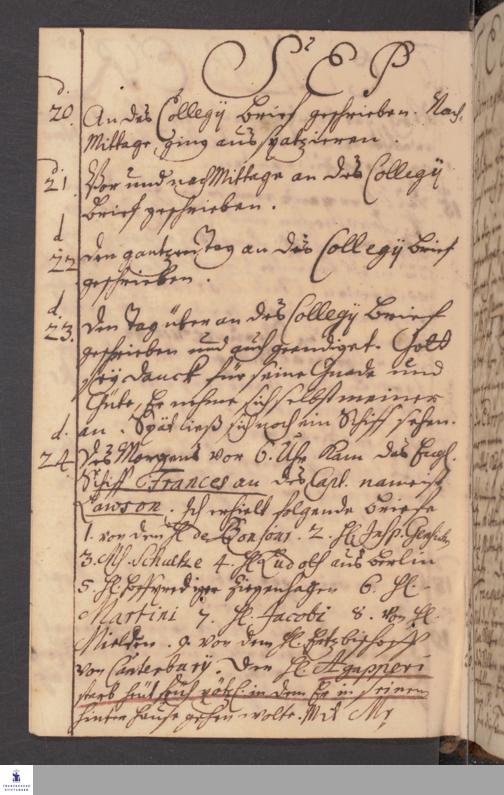 SEP
d.
20. An des Collegÿ brief geschrieben. Nach-
Mittage ging aus spatzieren.
d.
21. Vor und nach Mittage an des Collegÿ
brief geschrieben.
d.
22. den gantzen Tag an des Collegÿ brief
geschrieben.
d.
23. den Tag über an des Collegÿ brief
geschrieben und auch geendiget. Gott
seÿ danck für seine Gnade und
Güte, Er nehme sich selbst meiner
an. Spät ließ sich noch ein Schiff sehen.
d.
24. des Morgens vor 6. Uhr kam das Engl.
Schiff Frances an des Capt.
Lawson. Ich erhielt folgende briefe
1. von dem H. 2. H. Insp.
3. Mr. Schultze 4. H. Rudolf aus Berlin
5. H. Hofprediger Ziegenhagen 6. H.
Martini 7. H. Jacobi 8. von H.
9. von dem H. Ertzbischoff
von Canterburÿ. Den H. Agapperi
starb in dem Er in seinem
hinter hause gehen wolte. Mit Mr
FRANCKESCHE
STIFTUNGEN